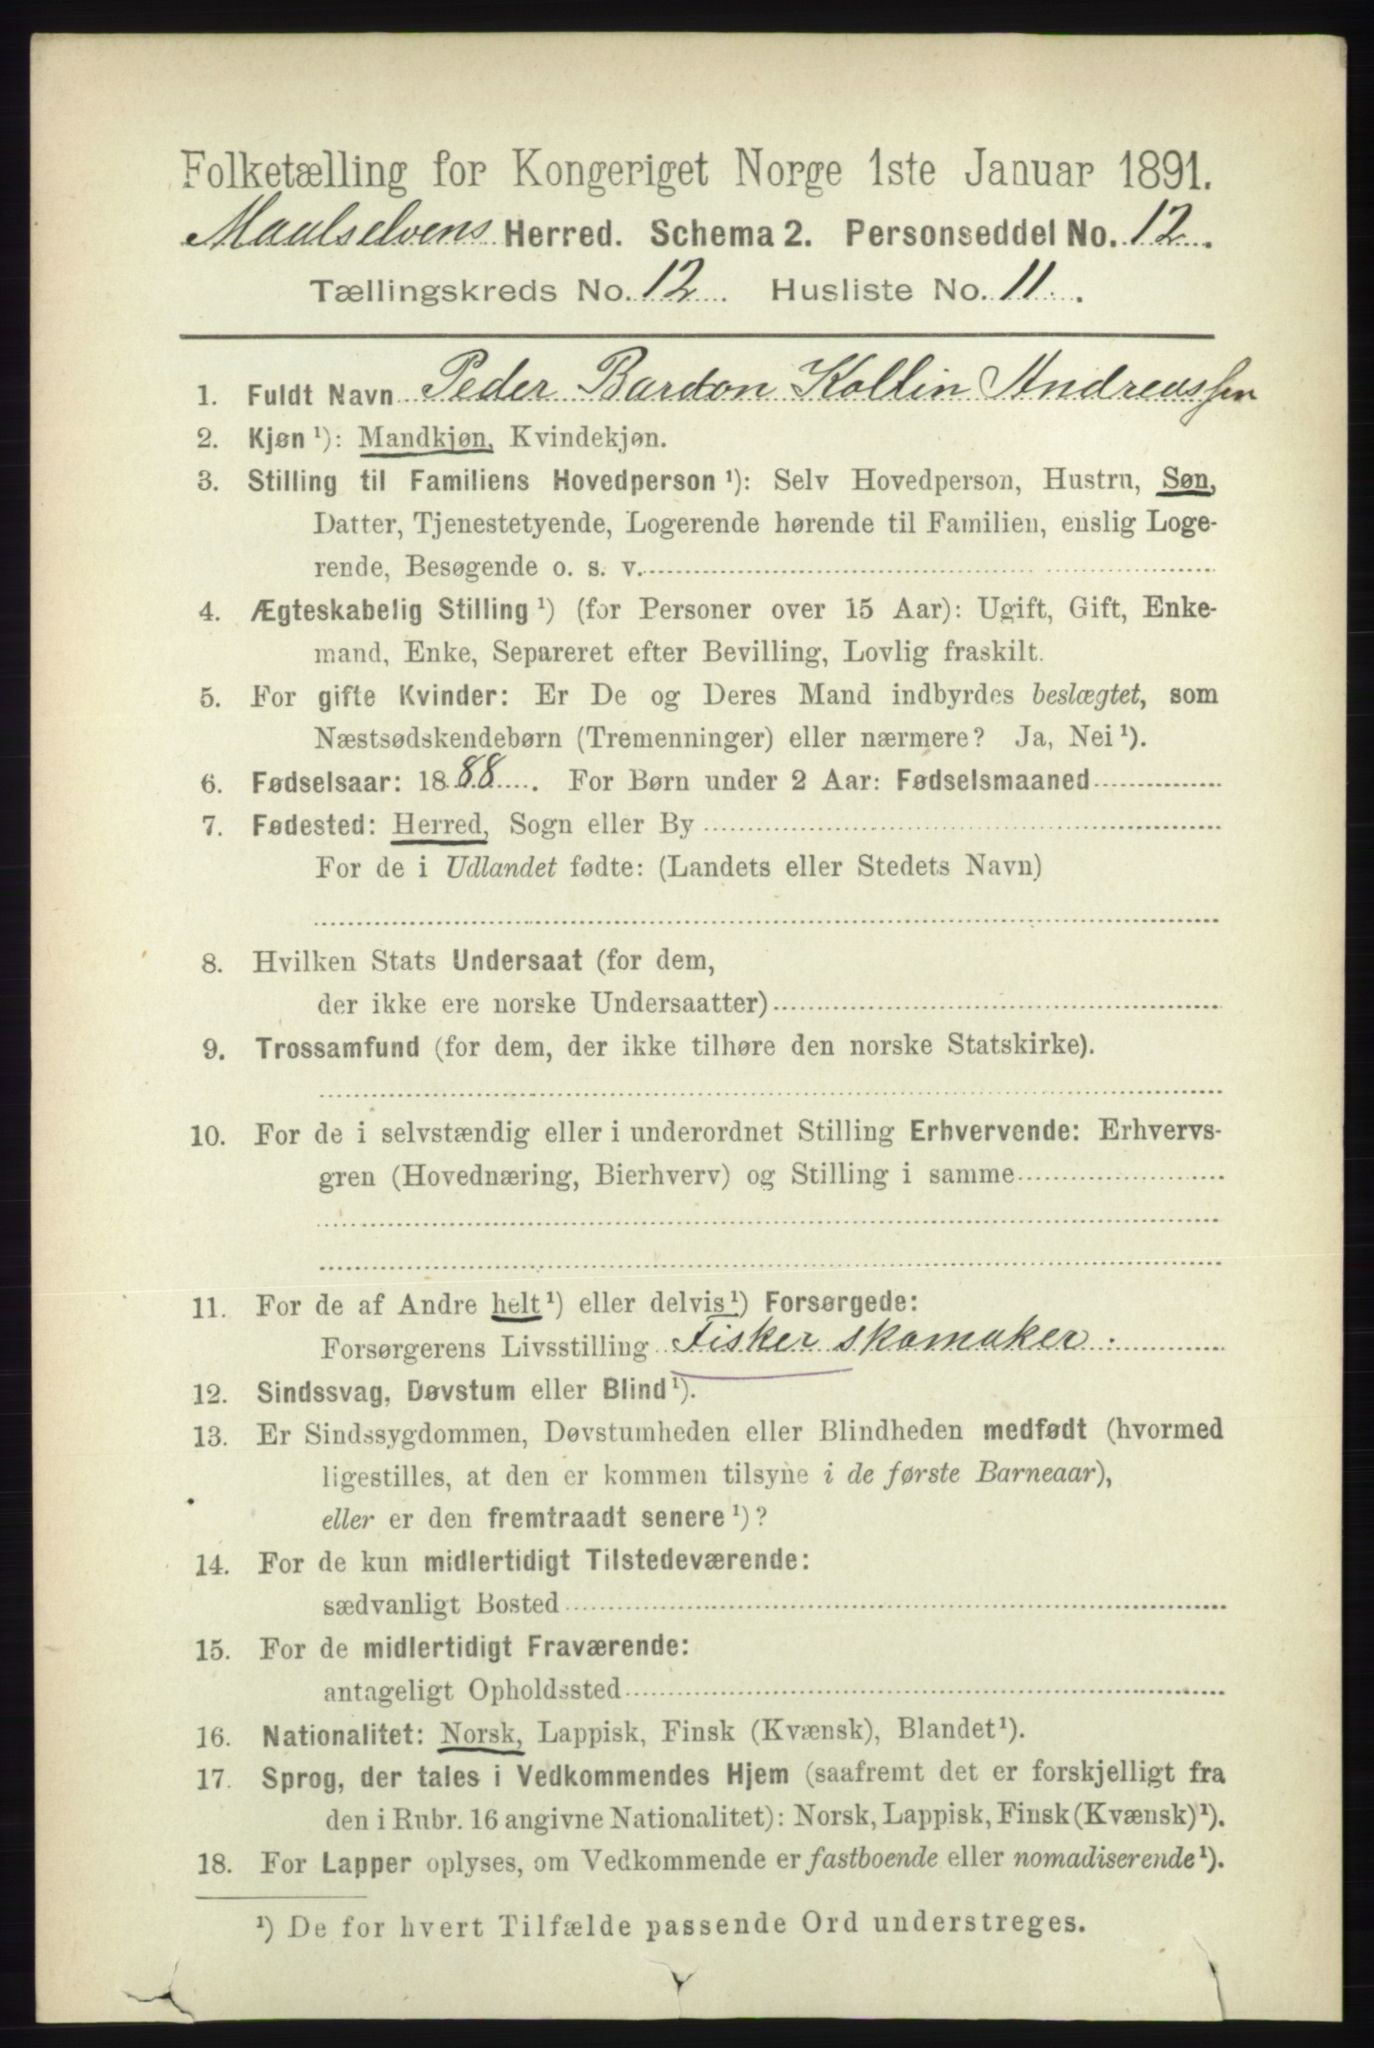 Folketælling for Kongeriget Norge 1ste Januar 1891.
Maalselvens Herred. Schema 2. Personseddel No. 12.
Tællingskreds No. 12. Husliste No. 11.
1. Fuldt Navn Peder Bardon Kollin Andreassen
2. Kjøn ¹): Mandkjøn, Kvindekjøn.
3. Stilling til Familiens Hovedperson ¹): Selv Hovedperson, Hustru, Søn,
Datter, Tjenestetyende, Logerende hørende til Familien, enslig Loge-
rende, Besøgende o. s. v.
4. Ægteskabelig Stilling ¹) (for Personer over 15 Aar): Ugift, Gift, Enke-
mand, Enke, Separeret efter Bevilling, Lovlig fraskilt.
5. For gifte Kvinder: Er De og Deres Mand indbyrdes beslægtet, som
Næstsødskendebørn (Tremenninger) eller nærmere? Ja, Nei ¹).
6. Fødselsaar: 1888. For Børn under 2 Aar: Fødselsmaaned
7. Fødested: Herred, Sogn eller By
For de i Udlandet fødte: (Landets eller Stedets Navn)
8. Hvilken Stats Undersaat (for dem,
der ikke ere norske Undersaatter)
9. Trossamfund (for dem, der ikke tilhøre den norske Statskirke).
10. For de i selvstændig eller i underordnet Stilling Erhvervende: Erhvervs-
gren (Hovednæring, Bierhverv) og Stilling i samme
11. For de af Andre helt ¹) eller delvis ¹) Forsørgede:
Forsørgerens Livsstilling Fisker skomaker.
12. Sindssvag, Døvstum eller Blind ¹).
13. Er Sindssygdommen, Døvstumheden eller Blindheden medfødt (hvormed
ligestilles, at den er kommen tilsyne i de første Barneaar),
eller er den fremtraadt senere ¹)?
14. For de kun midlertidigt Tilstedeværende:
sædvanligt Bosted
15. For de midlertidigt Fraværende:
antageligt Opholdssted
16. Nationalitet: Norsk, Lappisk, Finsk (Kvænsk), Blandet ¹).
17. Sprog, der tales i Vedkommendes Hjem (saafremt det er forskjelligt fra
den i Rubr. 16 angivne Nationalitet): Norsk, Lappisk, Finsk (Kvænsk) ¹).
18. For Lapper oplyses, om Vedkommende er fastboende eller nomadiserende ¹).
¹) De for hvert Tilfælde passende Ord understreges.